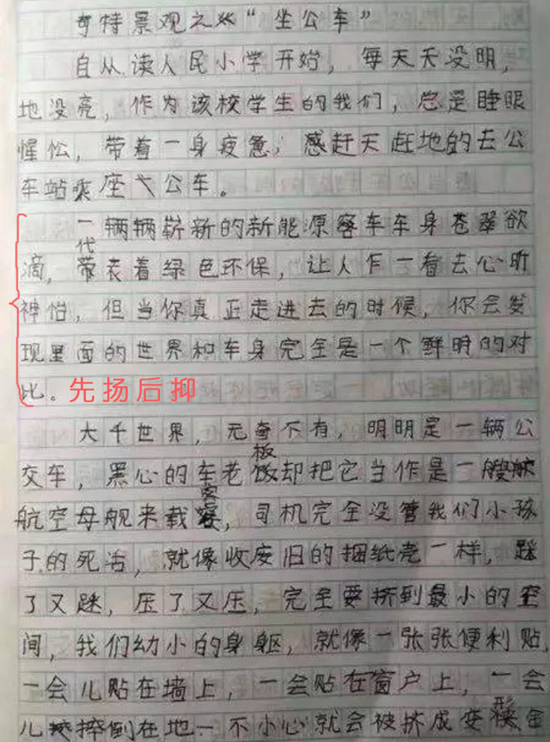 奇特景观之巛“坐公车”
自从读人民小学开始，每天天没明，
地没亮，作为该校学生的我们，总是睡眼
惺忪，带着一身疲惫，感赶天赶地的去公
车站乘座公车。
一辆辆崭新的新能源客车车身苍翠欲
滴，代表着绿色环保，让人乍一看去心旷
神怡，但当你真正走进去的时候，你会发
现里面的世界和车身完全是一个鲜明的对
比。先扬后抑
大千世界，无奇不有，明明是一辆公
交车，黑心的车老板却把它当作是一艘
航空母舰来载客，司机完全没管我们小孩
子的死活，就像收废旧的捆纸壳一样，踩
了又踩，压了又压，完全要挤到最小的空
间，我们幼小的身躯，就像一张张便利贴，
一会儿贴在墙上，一会贴在窗户上，一会
儿摔倒在地一不小心就会被挤成变形金